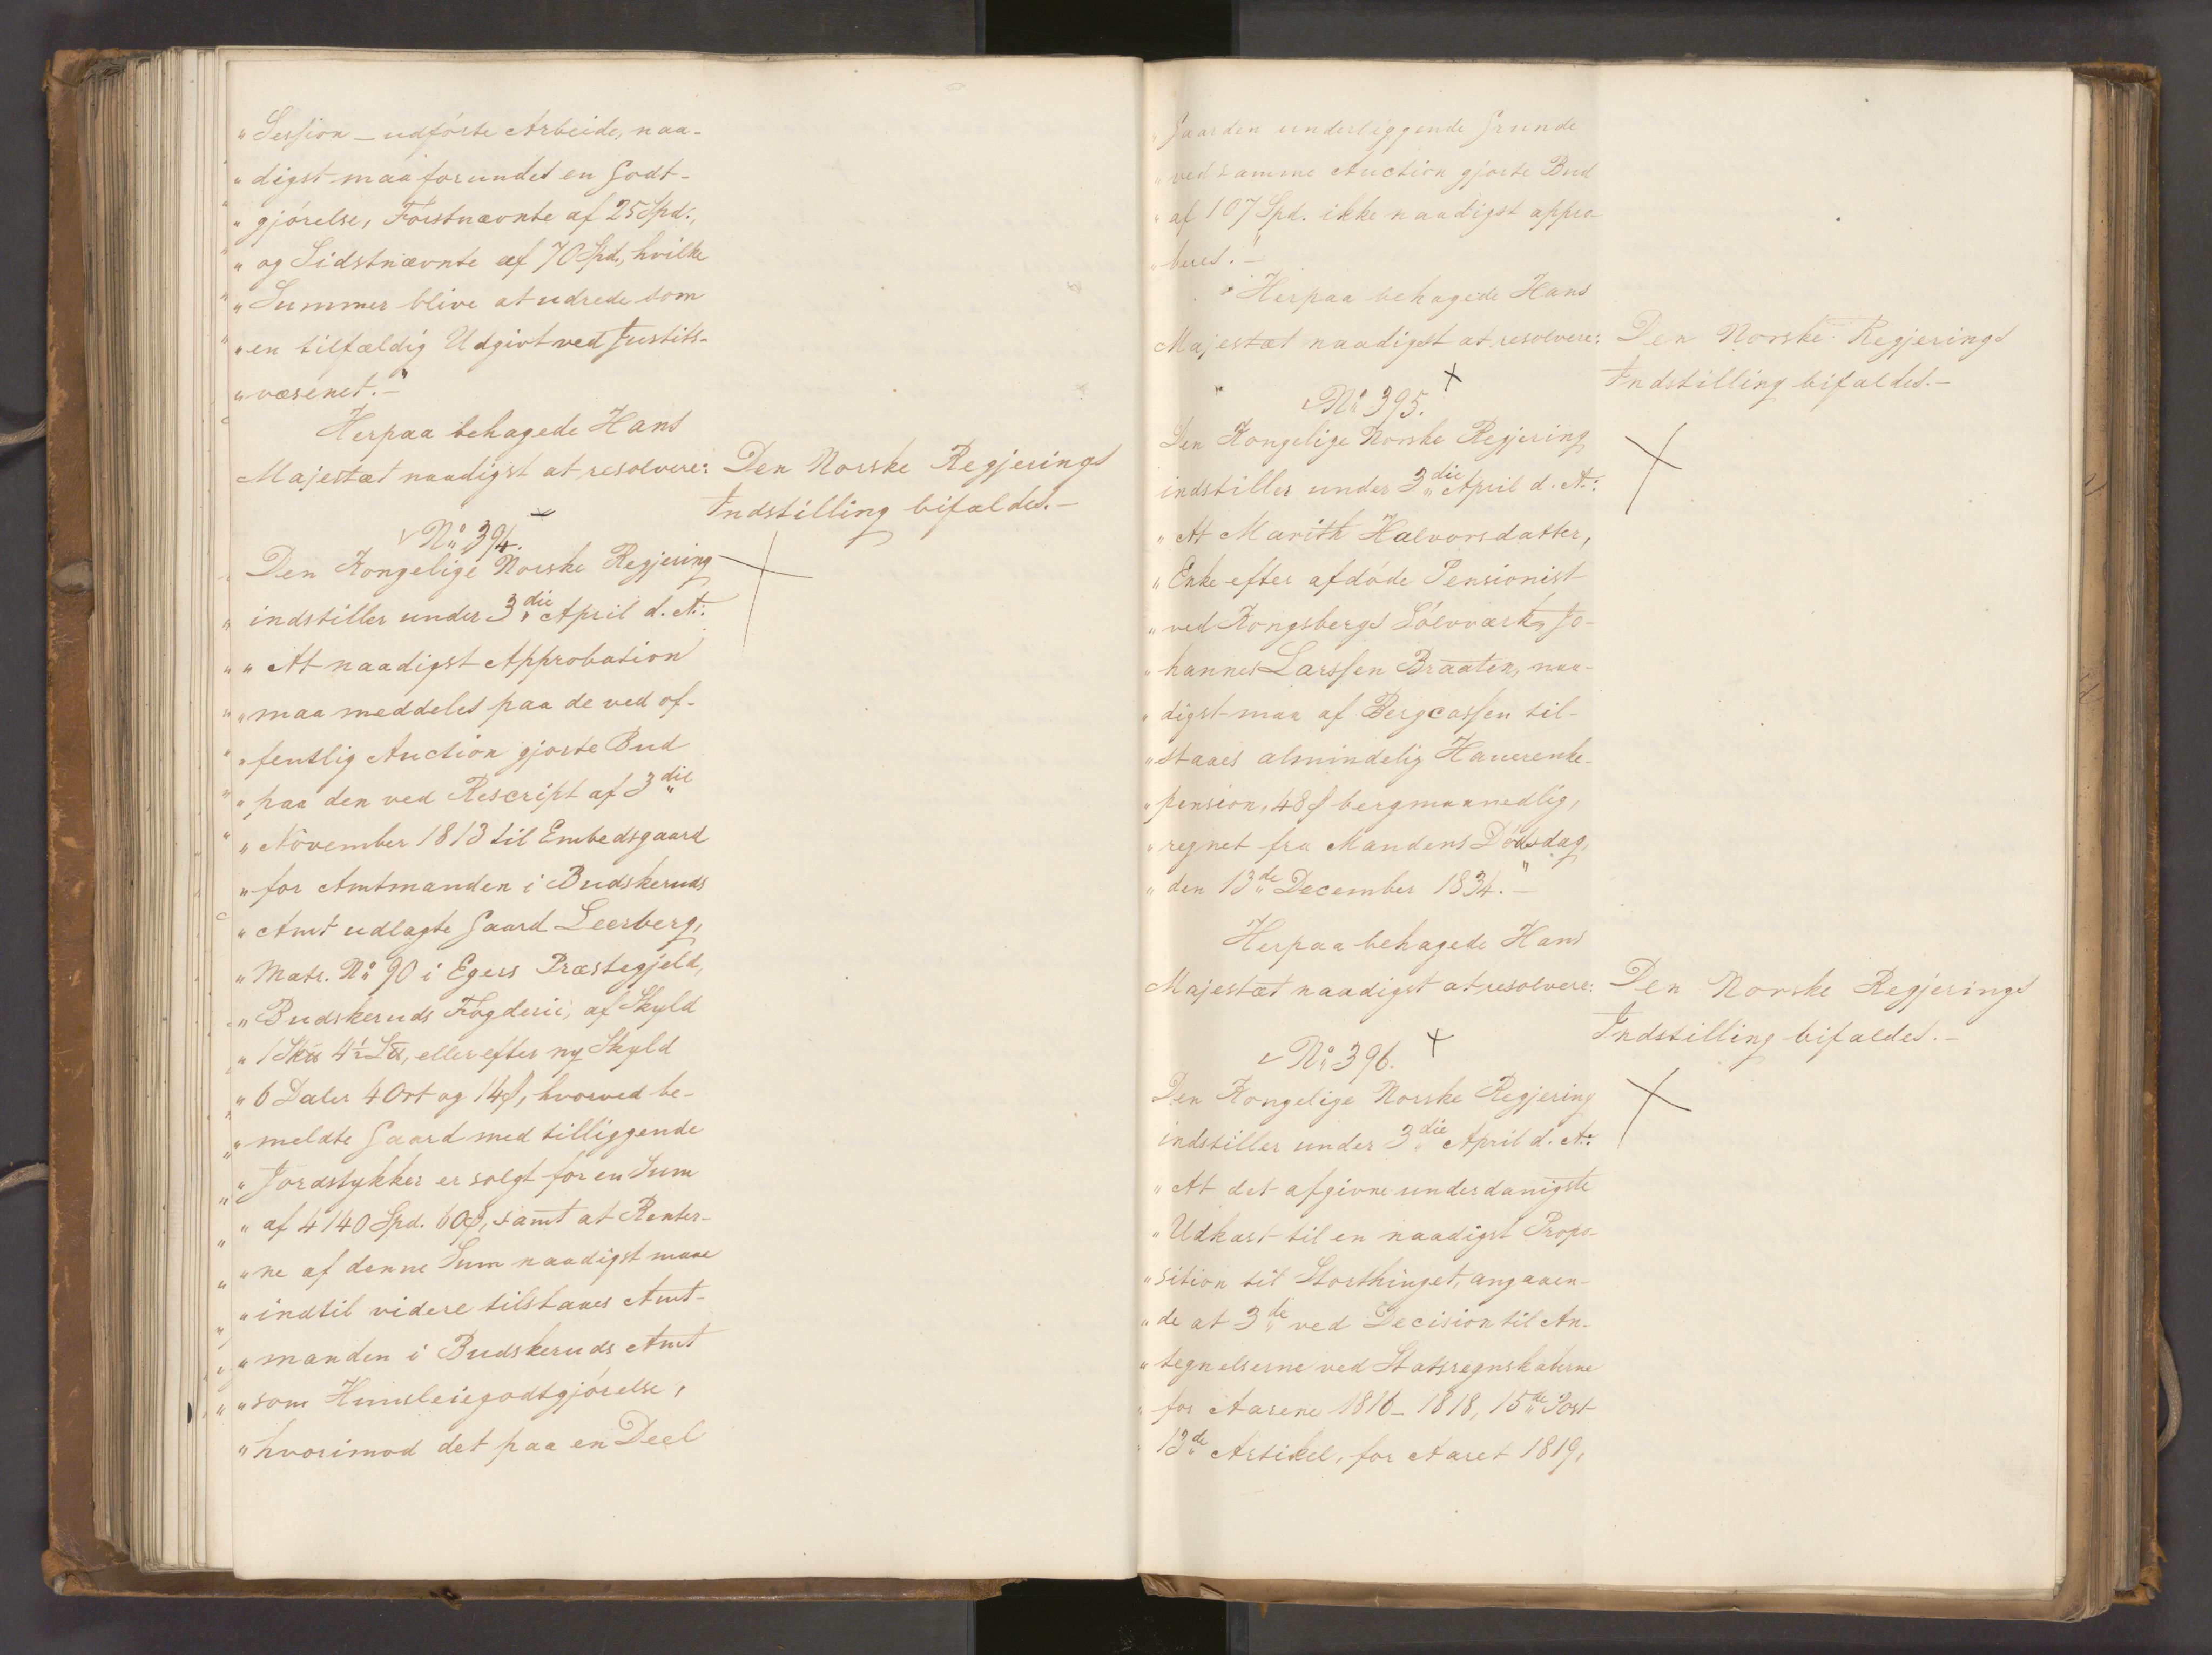 „Session – udförte Arbeide, naa-
„digst maa forundet en Godt-
„gjörelse, Förstnævnte af 25 Spd.,
„og Sidstnævnte af 70 Spd., hvilke
„Summer blive at udrede som
„en tilfældig Udgivt ved Justits-
„væsenet.–"
Herpaa behagede Hans
Majestæt naadigst at resolvere: Den Norske Regjerings
Indstilling bifaldes.–
No 394.
Den Kongelige Norske Regjering
„indstiller under 3die April d. A.:
„„At naadigst Approbation
„„maa meddeles paa de ved of-
„„fentlig Auction gjorte Bud
„„paa den ved Rescript af 3die
„„November 1813 til Embedsgaard
„for Amtmanden i Budskeruds
„Amt udlagte Gaard Leerberg,
„Matr. No 90 i Egers Præstegjeld,
„Budskeruds Fogderie, af Skyld
„1 Sk℔ 4½ L℔, eller efter ny Skyld
„6 Daler 4 Ort og 14 ß, hvorved be-
„meldte Gaard med tilliggende
„Jordstykker er solgt for en Sum
„af 4140 Spd. 60 ß, samt at Renter-
„ne af denne Sum naadigst maae
„indtil videre tilstaaes Amt-
„manden i Budskeruds Amt
„som Huusleiegodtgjörelse,
„hvorimod det paa en Deel
„Gaarden underliggende Grunde
„ved samme Auction gjorte Bud
„af 107 Spd. ikke naadigst appro-
„beres."–
Herpaa behagede Hans
Majestæt naadigst at resolvere: Den Norske Regjerings
Indstilling bifaldes.–
No 395.
Den Kongelige Norske Regjering
indstiller under 3die April d. A.:
„At Marith Halvorsdatter,
„Enke efter afdöde Pensionist
„ved Kongsbergs Sölvværk, Jo-
„hannes Larssen Braaten, naa-
„digst maa af Bergcassen til-
„staaes almindelig Hauerenke-
„pension, 48 ß bergmaanedlig,
„regnet fra Mandens Dödsdag,
„den 13de December 1834."–
Herpaa behagede Hans
Majestæt naadigst at resolvere: Den Norske Regjerings
Indstilling bifaldes.–
No 396.
Den Kongelige Norske Regjering
indstiller under 3die April d. A.:
„At det afgivne underdanigste
„Udkast til en naadigst Propo-
„sition til Storthinget, angaaen-
„de at 3de ved Decision til An-
„tegnelserne ved Statsregnskaberne
„for Aarene 1816–1818, 15de Post
„13de Artikel, for Aaret 1819,